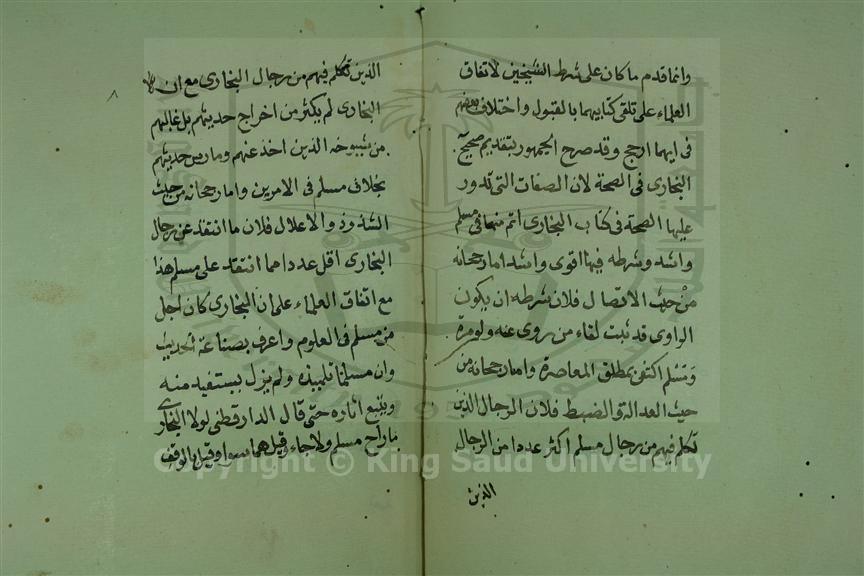 وانما قدم ما كان على شرط الشيخين لاتفاق
العلماء على تلقى كتابيهما بالقبول واختلاف بعضهم
فى ايهما ارجح وقد صرح الجمهور بتقديم صحيح
البخارى فى الصحة لان الصفات التى تدور
عليها الصحة فى كتاب البخارى اتم منها فى مسلم
واشد وشرطه فيها اقوى واشد اما رجحانه
من حيث الاتصال فلان شرطه ان يكون
الراوى قد ثبت لقاء من روى عنه ولو مرة
ومسلم اكتفى بمطلق المعاصرة واما رجحانه من
حيث العدالة والضبط فلان الرجال الذين
تكلم فيهم من رجال مسلم اكثر عددا من الرجال
الذين
الذين تكلم فيهم من رجال البخارى مع ان
البخارى لم يكثر من اخراج حديثهم بل غالبهم
من شيوخه الذين اخذ عنهم ومارس حديثهم
بخلاف مسلم فى الامرين واما رجحانه من حيث
الشذوذ والاعلال فلان ما انتقد عن رجال
البخارى اقل عددا مما انتقد على مسلم هذا
مع اتفاق العلماء على ان البخارى كان اجل
من مسلم فى العلوم واعرف بصناعة الحديث
وان مسلما تلميذه ولم يزل يستفيد منه
ويتبع اثاره حتى قال الدارقطنى لولا البخارى
ما راح مسلم ولا جاء وقيل هما سوا وقيل بالوقف
Copyright © King Saud University